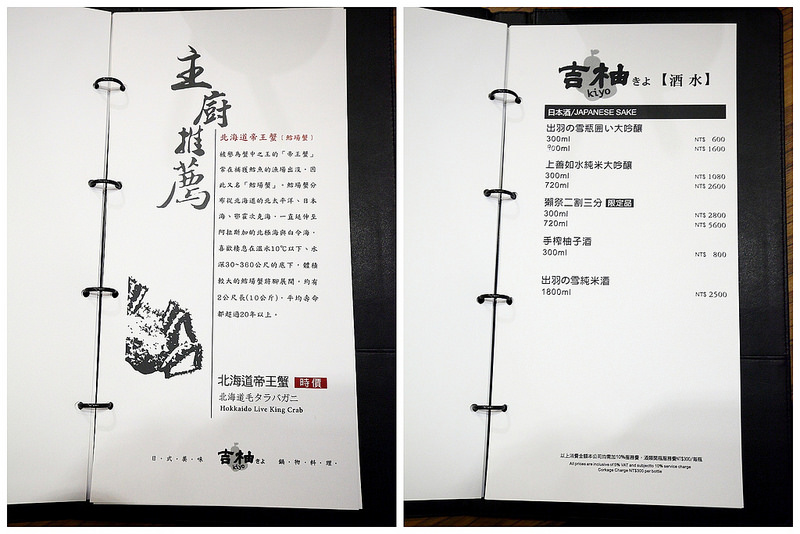 主廚推薦
北海道帝王蟹（鱈場蟹）
被譽為蟹中之王的「帝王蟹」
常在捕獲鱈魚的漁場出沒，因
此又名「鱈場蟹」。鱈場蟹分
布從北海道的北太平洋、日本
海、鄂霍次克海，一直延伸至
阿拉斯加的北極海與白令海，
喜歡棲息在溫水10℃以下、水
深30~360公尺的底下，體積
較大的鱈場蟹將腳展開，約有
2公尺長(10公斤)，平均壽命
都超過20年以上。
北海道帝王蟹 時價
北海道毛タラバガニ
Hokkaido Live King Crab
日．式．美．味 吉柚 きよ kiyo 鍋．物．料．理．
吉柚 きよ kiyo 【酒 水】
日本酒/JAPANESE SAKE
出羽の雪瓶囲い大吟釀
300ml NT$ 600
900ml NT$ 1600
上善如水純米大吟釀
300ml NT$ 1080
720ml NT$ 2600
獺祭二割三分 限定品
300ml NT$ 2800
720ml NT$ 5600
手榨柚子酒
300ml NT$ 800
出羽の雪純米酒
1800ml NT$ 2500
以上消費金額本公司均需加10%服務費，酒類開瓶服務費NT$300/每瓶
All prices are inclusive of 5% VAT and subject to 10% service charge
Corkage Charge NT$300 per bottle